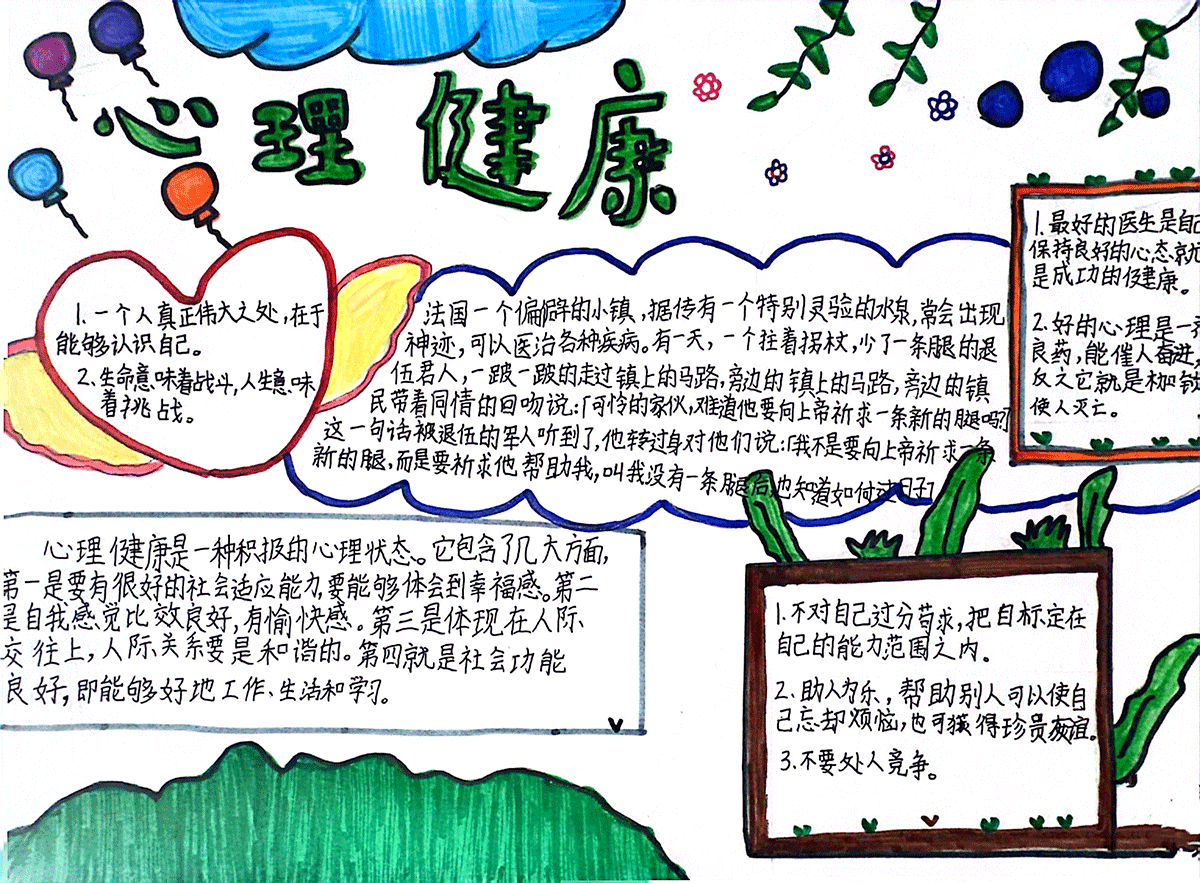 心理健康
1.一个人真正伟大之处,在于
能够认识自己。
2、生命意味着战斗,人生意味
着挑战。
法国一个偏僻的小镇,据传有一个特别灵验的水泉,常会出现
神迹,可以医治各种疾病。有一天,一个拄着拐杖,少了一条腿的退
伍君人,一跛一跛的走过镇上的马路,旁边的镇上的马路,旁边的镇
民带着同情的口吻说:「可怜的家伙,难道他要向上帝祈求一条新的腿吗?」
这一句话被退伍的军人听到了,他转过身对他们说:「我不是要向上帝祈求一条
新的腿,而是要祈求他帮助我,叫我没有一条腿后,也知道如何过日子」
1.最好的医生是自己
保持良好的心态就
是成功的健康。
2.好的心理是一
良药,能催人奋进
反之它就是枷
使人灭亡。
心理健康是一种积极的心理状态。它包含了几大方面,
第一是要有很好的社会适应能力,要能够体会到幸福感。第二
是自我感觉比效良好,有愉快感。第三是体现在人际
交往上,人际关系要是和谐的。第四就是社会功能
良好,即能够好地工作、生活和学习。
1.不对自己过分苟求,把目标定在
自己的能力范围之内。
2.助人为乐,帮助别人可以使自
己忘却烦恼,也可獲得珍贵友谊。
3.不要处人竞争。